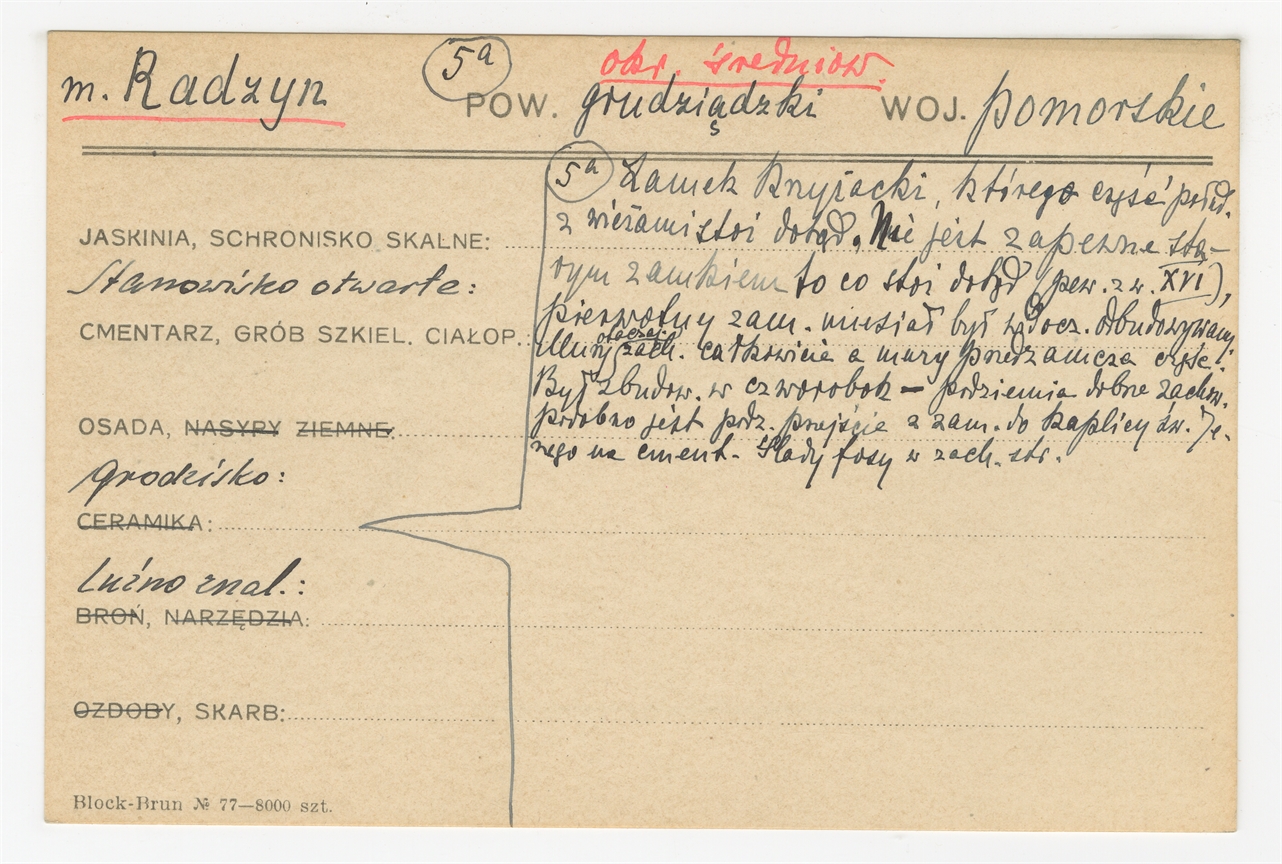 m. Radzyn
5a
okr. średniow.
POW. grudziądzki
WOJ. pomorskie
5a Zamek Krzyżacki, którego część połud.
z wieżami stoi dotąd. Nie jest zapewne sta-
rym zamkiem to co stoi dotąd (pew. z w. XVI),
pierwotny zam. musiał być widocz. odbudowywany.
Mury otaczaj. zach. całkowicie a mury przedzamcza część.
Był zbudow. w czworobok – podziemia dobrze zachow.
podobno jest podz. przejście z zam. do kaplicy św. Je-
rzego na cment. Ślady fosy w zach. str.
JASKINIA, SCHRONISKO SKALNE:
Stanowisko otwarte:
CMENTARZ, GRÓB SZKIEL. CIAŁOP.:
OSADA, NASYPY ZIEMNE:
Grodzisko:
CERAMIKA:
Luźno znal.:
BROŃ, NARZĘDZIA:
OZDOBY, SKARB:
Block-Brun № 77—8000 szt.